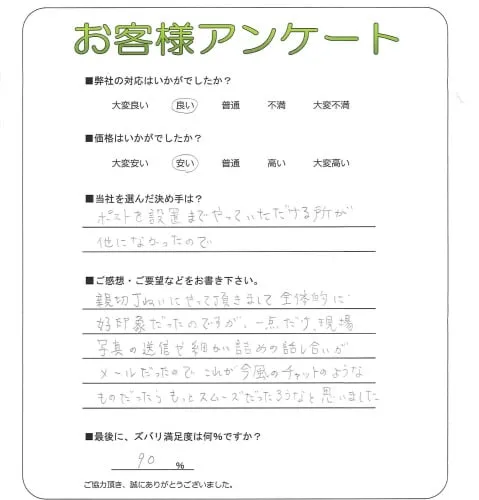 お客様アンケート
■弊社の対応はいかがでしたか？
大変良い 良い 普通 不満 大変不満
■価格はいかがでしたか？
大変安い 安い 普通 高い 大変高い
■当社を選んだ決め手は？
ポストを設置までやっていただける所が
他になかったので
■ご感想・ご要望などをお書き下さい。
親切丁ねいにやって頂きまして全体的に
好印象だったのですが、一点だけ、現場
写真の送信や細かい詰めの話し合いが
メールだったので これが今風のチャットのような
ものだったら もっとスムーズだったろうなと思いました
■最後に、ズバリ満足度は何%ですか？
90 %
ご協力頂き、誠にありがとうございました。